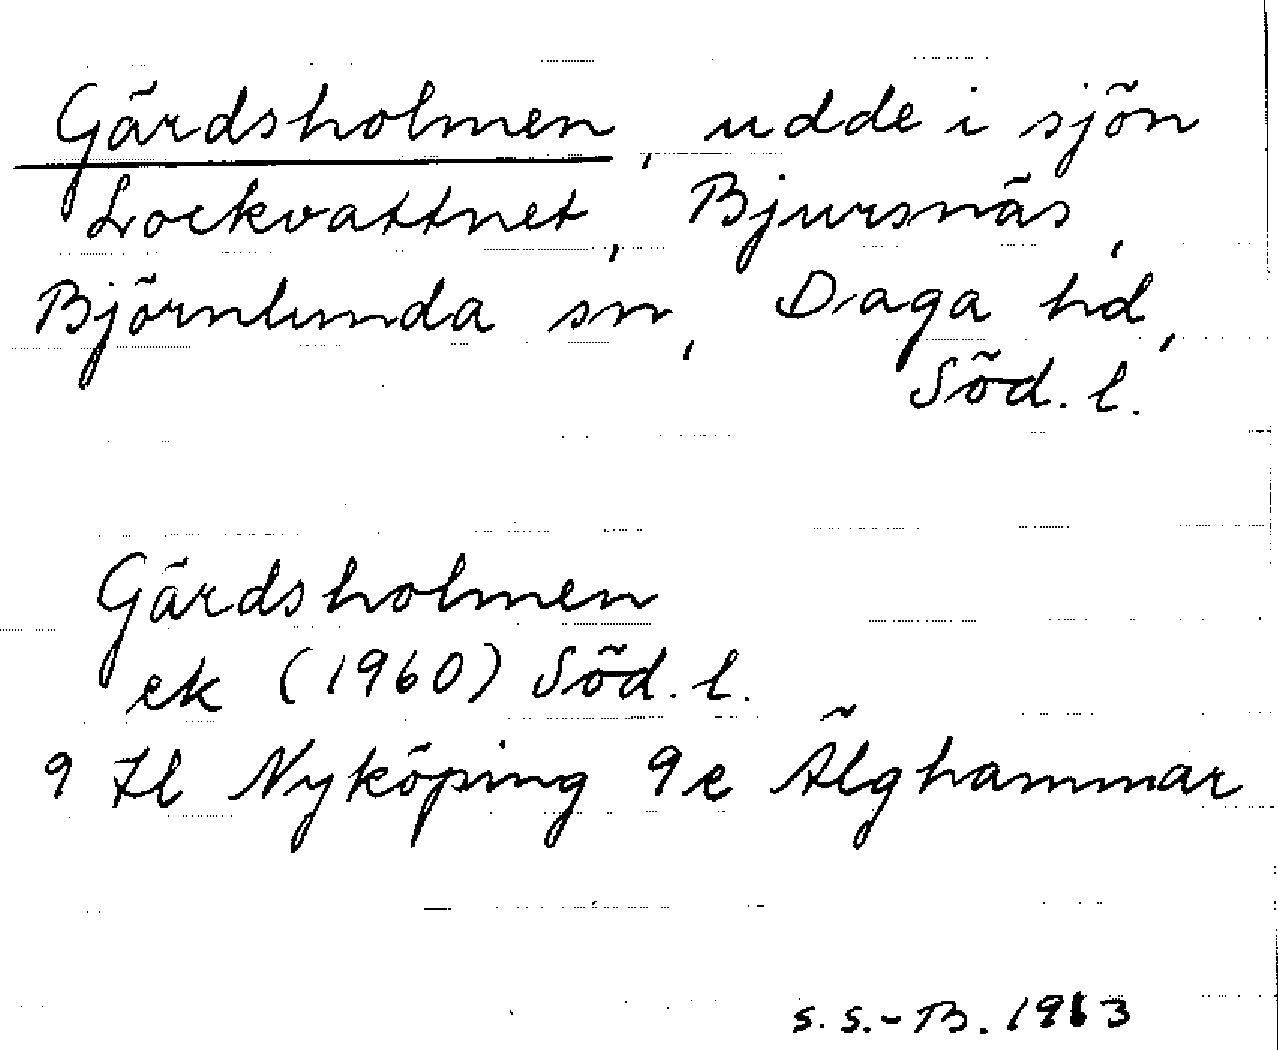 Gärdsholmen, udde i sjön
Lockvattnet, Bjursnäs,
Björnlunda sn, Daga hd,
Söd. l.
Gärdsholmen
ek (1960) Söd. l.
9 Il Nyköping 9e Älghammar
S. S.-B. 1963